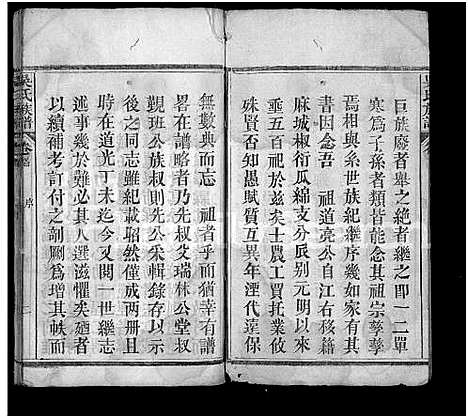 巨族廢者舉之絶者繼之即一二單
寒爲子孫者類皆能念其祖宗孳孳
焉相與系世族紀繼序幾如家有其
書因念吾 祖道亮公自江右移籍
麻城椒衍瓜綿支分派别元明以來
垂五百祀於兹矣士農工買托業攸
殊賢否知愚賦質互異年湮代遠保
無數典而忘 祖者乎而猶幸有譜
畧在譜略者乃先叔文瑞林公堂叔
覲班公族叔則先公采輯錄存以示
後之同志雖紀載昭然僅成两册且
時在道光丁未迄今又閱一世繼志
述事幾於難必其人選滋懼矣廼者
以續補考訂付之剞劂爲增其帙而
吳氏族譜 卷 序
吳氏族譜